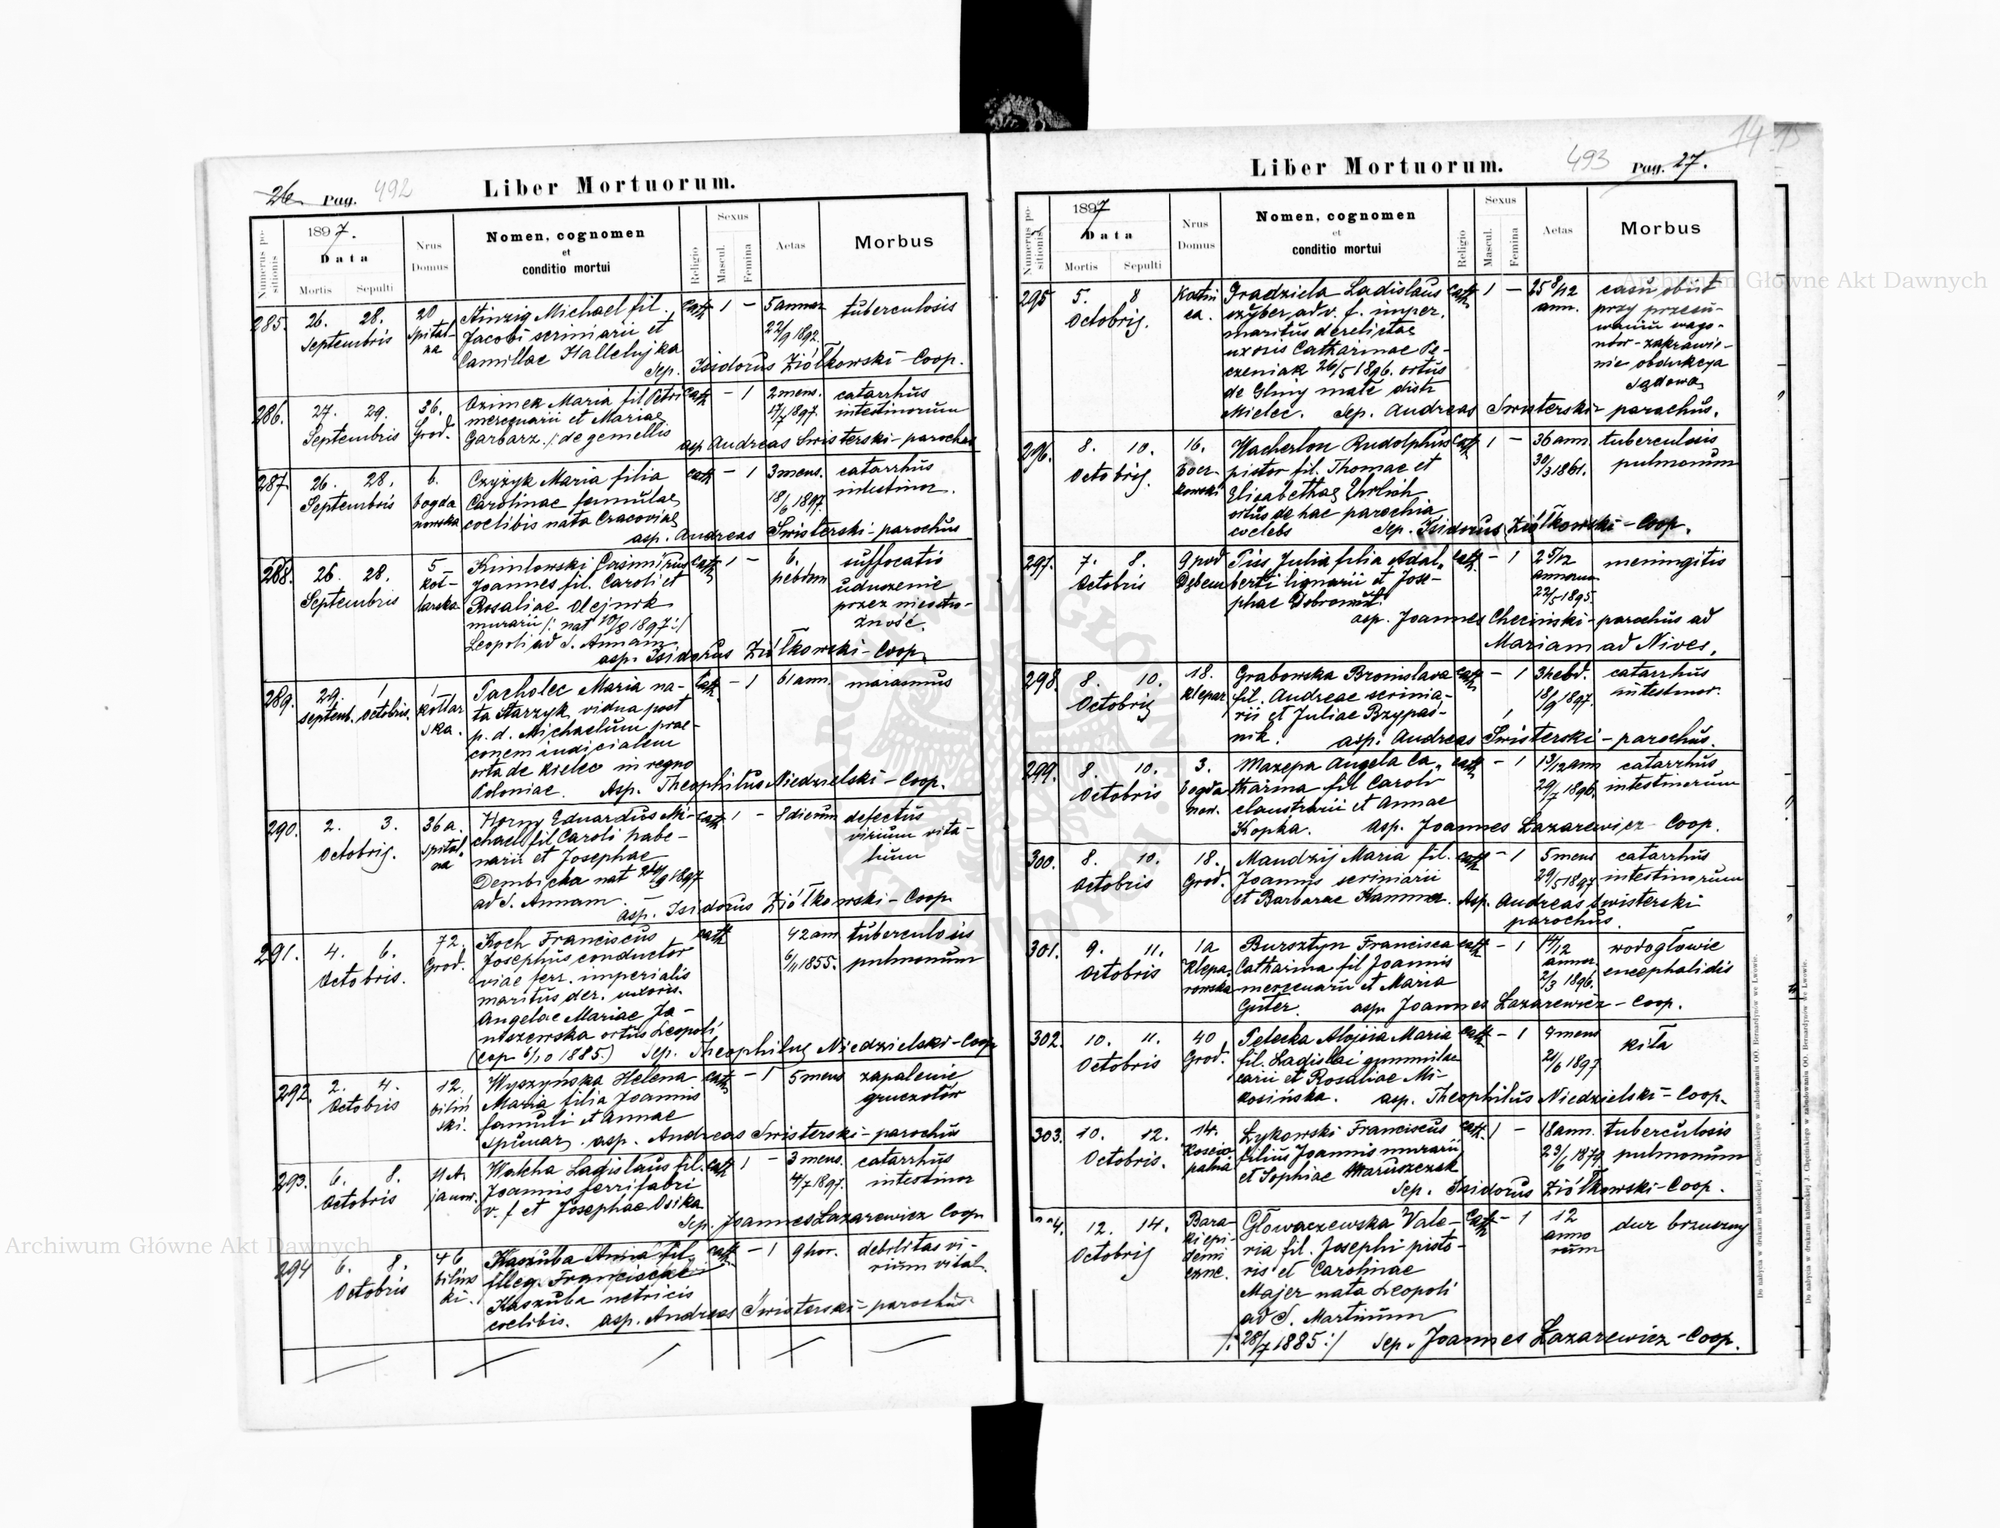 26 Pag. 492 Liber Mortuorum.
Numerus positionis
1897. Data
Mortis Sepulti
Nrus Domus
Nomen, cognomen
et
conditio mortui
Religio
Sexus
Mascul. Femina
Aetas
Morbus
285. 26. 28. Septembris
20 Spitalna
Michael fil.
Jacobi scriniarii et
Camillae Hallelujka
cath 1 –
5 annor. 22/9 1892.
tuberculosis
Sep. Isidorus Ziółkowski – Coop.
286. 27. 29. Septembris
36. Grod.
Ozimek Maria fil Petri
mercenarii et Mariae
Garbarz /: de gemellis
cath – 1
2 mens. 17/7 1897.
catarrhus
intestinorum
asp. Andreas Swisterski – parochus
287. 26. 28. Septembris
6. bogdanowska
Czyżyk Maria filia
Carolinae famulae
coelibis nata Cracoviae
cath – 1
3 mens. 18/6 1897.
catarrhus
intestinor.
asp. Andreas Swisterski – parochus
288. 26. 28. Septembris
5 kotlarska
Casimirus
Joannes fil. Caroli et
Rosaliae Olejnik
murarii /: nat 10/8 1897 :/
Leopoli ad S. Annam
cath 1 –
6. hebdom
suffocatio
uduszenie
przez nieostrożność.
asp. Isidorus Ziółkowski – Coop.
289. 29. septemb. 1 octobris.
1 kotlarska.
Pacholec Maria nata
Starzyk vidua post
p. d. Michaelum praeconem
iudicialem
orta de Kielec in regno
Poloniae.
cath – 1
61 ann.
marasmus
Asp. Theophilus Niedzielski – Coop.
290. 2. 3. Octobris.
36 a. Spitalna
Horny Eduardus Michael
fil Caroli habenarii
et Josephae
Dembicka nat 24/9 1897
ad S. Annam
cath 1 –
8 dierum
defectus
virium vitalium
asp. Isidorus Ziółkowski – Coop
291. 4. 6. Octobris.
72. Grod.
Koch Franciscus
Josephus conductor
viae ferr. imperialis
maritus der. uxoris.
Angelae Mariae Januszewska
ortus Leopoli
(cop 6/10 1885.)
cath
42 ann 6/11 1855.
tuberculosis
pulmonum
Sep. Theophilus Niedzielski – Coop
292. 2. 4. Octobris
12. bilinski.
Wyszyńska Helena
Maria filia Joannis
famuli et Annae
Spiwar.
cath – 1
5 mens
zapalenie
gruczołów
asp. Andreas Swisterski – parochus
293. 6. 8. Octobris
11 A. janow.
Watcha Ladislaus fil.
Joannis ferrifabri
v. f et Josephae Osika
cath 1 –
3 mens. 4/7 1897.
catarrhus
intestinor
Sep. Joannes Lazarewicz Coop
294 6. 8. Octobris
46 bilinski.
Kaszuba Anna fil
illeg. Franciscae
Kaszuba nutricis
coelibis.
cath – 1
9 hor.
debilitas virium vital.
asp. Andreas Swisterski – parochus.
Liber Mortuorum. 493 Pag. 27.
14 15
Numerus positionis
1897 Data
Mortis Sepulti
Nrus Domus
Nomen, cognomen
et
conditio mortui
Religio
Sexus
Mascul. Femina
Aetas
Morbus
295 5. 8 Octobris.
Gradziela Ladislaus
maritus derelictae
uxoris Catharinae Pezeniak
26/5 1896. ortus
de Gliny małe distr
Mielec.
cath 1 –
25 8/12 ann.
casu obiit
przy przesuwaniu
wagonów – zakrawienie
obdukcya
sądowa
Sep. Andreas Swisterski – parochus.
296. 8. 10. Octobris.
16.
Wacherlon Rudolphus
pistor fil. Thomae et
Elisabethae Ehrlich
ortus de hac parochia
coelebs
cath 1 –
36 ann. 30/3 1861.
tuberculosis
pulmonum
Sep. Isidorus Ziółkowski – Coop.
297. 7. 8. Octobris
9 pod Dębem
Piss Julia filia Adalberti
lignarii et Josephae
cath. – 1
2 5/12 annorum 22/5 1895.
meningitis
asp. Joannes Checinski – parochus ad
Mariam ad Nives.
298. 8. 10. Octobris
18. klepar.
Grabowska Bronislava
fil. Andreae scriniarii
et Juliae Brzypaśnik.
cath – 1
3 hebd. 18/9 1897.
catarrhus
intestinor.
asp. Andreas Swisterski – parochus.
299. 8. 10. Octobris
3. bogdanow.
Mazepa Angela Catharina
fil Caroli
claustrarii et Annae
Kopka.
cath – 1
1 3/12 ann 29/7 1896.
catarrhus
intestinorum
asp. Joannes Lazarewicz – Coop.
300. 8. 10. Octobris
18. Grod.
Mandzij Maria fil.
Joannis scriniarii
et Barbarae Hammer.
cath – 1
5 mens 29/5 1897
catarrhus
intestinorum
Asp. Andreas Swisterski
parochus.
301. 9. 11. Octobris
1a Kleparowska
Bursztyn Francisca
Catharina fil Joannis
mercenarii et Maria
Guter.
cath – 1
annor. 2/3 1896.
wodogłowie
encephalidis
asp. Joannes Lazarewicz – Coop.
302. 10. 11. Octobris
40 Grod.
Petecka Alojsia Maria
fil. Ladislai
et Rosaliae Mikosińska.
cath – 1
4 mens 21/6 1897
kiła
asp. Theophilus Niedzielski – Coop.
303. 10. 12. Octobris.
14.
Łykowski Franciscus
filius Joannis murarii
et Sophiae Maruszczak
cath. 1 –
18 ann. 23/6 1879.
tuberculosis
pulmonum
Sep. Isidorus Ziółkowski – Coop.
304. 12. 14. Octobris
Baraki epidemiczne.
Głowaczewska Valeria
fil. Josephi pistoris
et Carolinae
Majer nata Leopoli
ad S. Martinum
/: 28/7 1885 :/
cath – 1
12 annorum
dur brzuszny
Sep. Joannes Lazarewicz – Coop.
Do nabycia w drukarni katolickiej J. Chęcińskiego w zabudowaniu OO. Bernardynów we Lwowie.
Do nabycia w drukarni katolickiej J. Chęcińskiego w zabudowaniu OO. Bernardynów we Lwowie.
Archiwum Główne Akt Dawnych
Archiwum Główne Akt Dawnych
ARCHIWUM GŁÓWNE AKT DAWNYCH